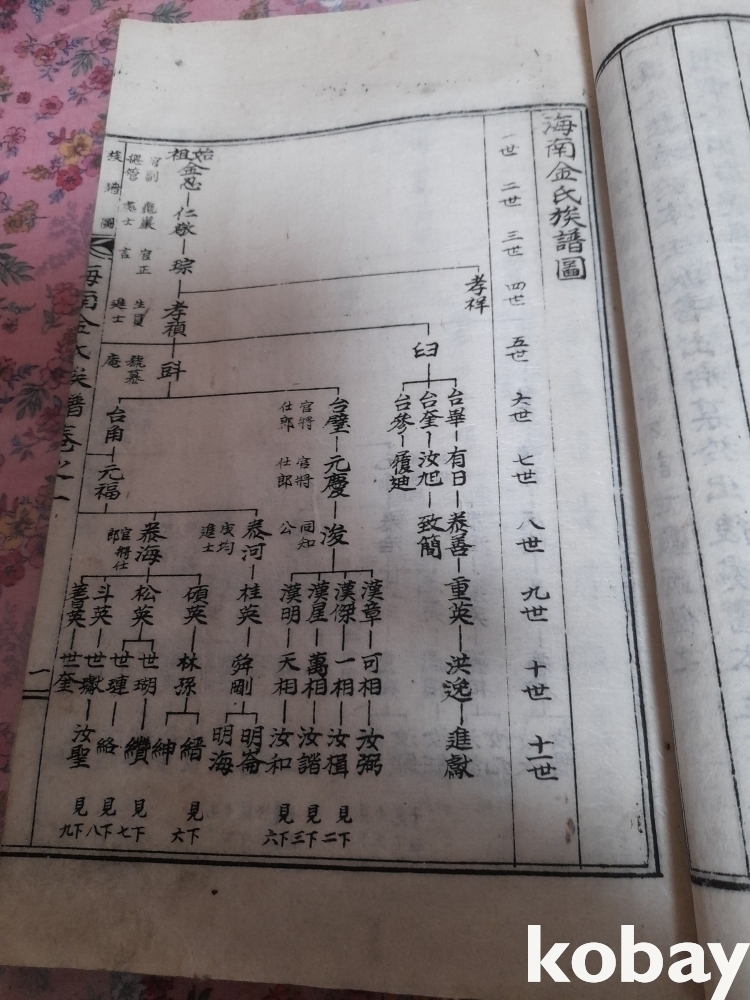 海南金氏族譜圖
一世 二世 三世 四世 五世 六世 七世 八世 九世 十世 十一世
始祖 金忍 仁敬 琮
孝祥
孝禎
臼
台畢 有日 泰善 重英 洪逸 進獻
台奎 汝旭 致簡
台參
台璧 元慶 浚
官將仕郎 官將仕郎 同知公
漢章 可相 汝弼
漢傑 一相 汝楫 見下二
漢星 萬相 汝諧 見下三
漢明 天相 汝和 見下六
台角 元福
泰河 桂英 舜剛
成均進士
明崙
明海
泰海
官將仕郎
碩英 林孫
縉 見下六
紳
松英
世瑚 纘 見下七
世璉 絡 見下八
斗英 世獻 汝聖 見下九
世奎
官副 龍巖 官正 生員 進士 號慕庵
海南金氏族譜卷之一
一
kobay